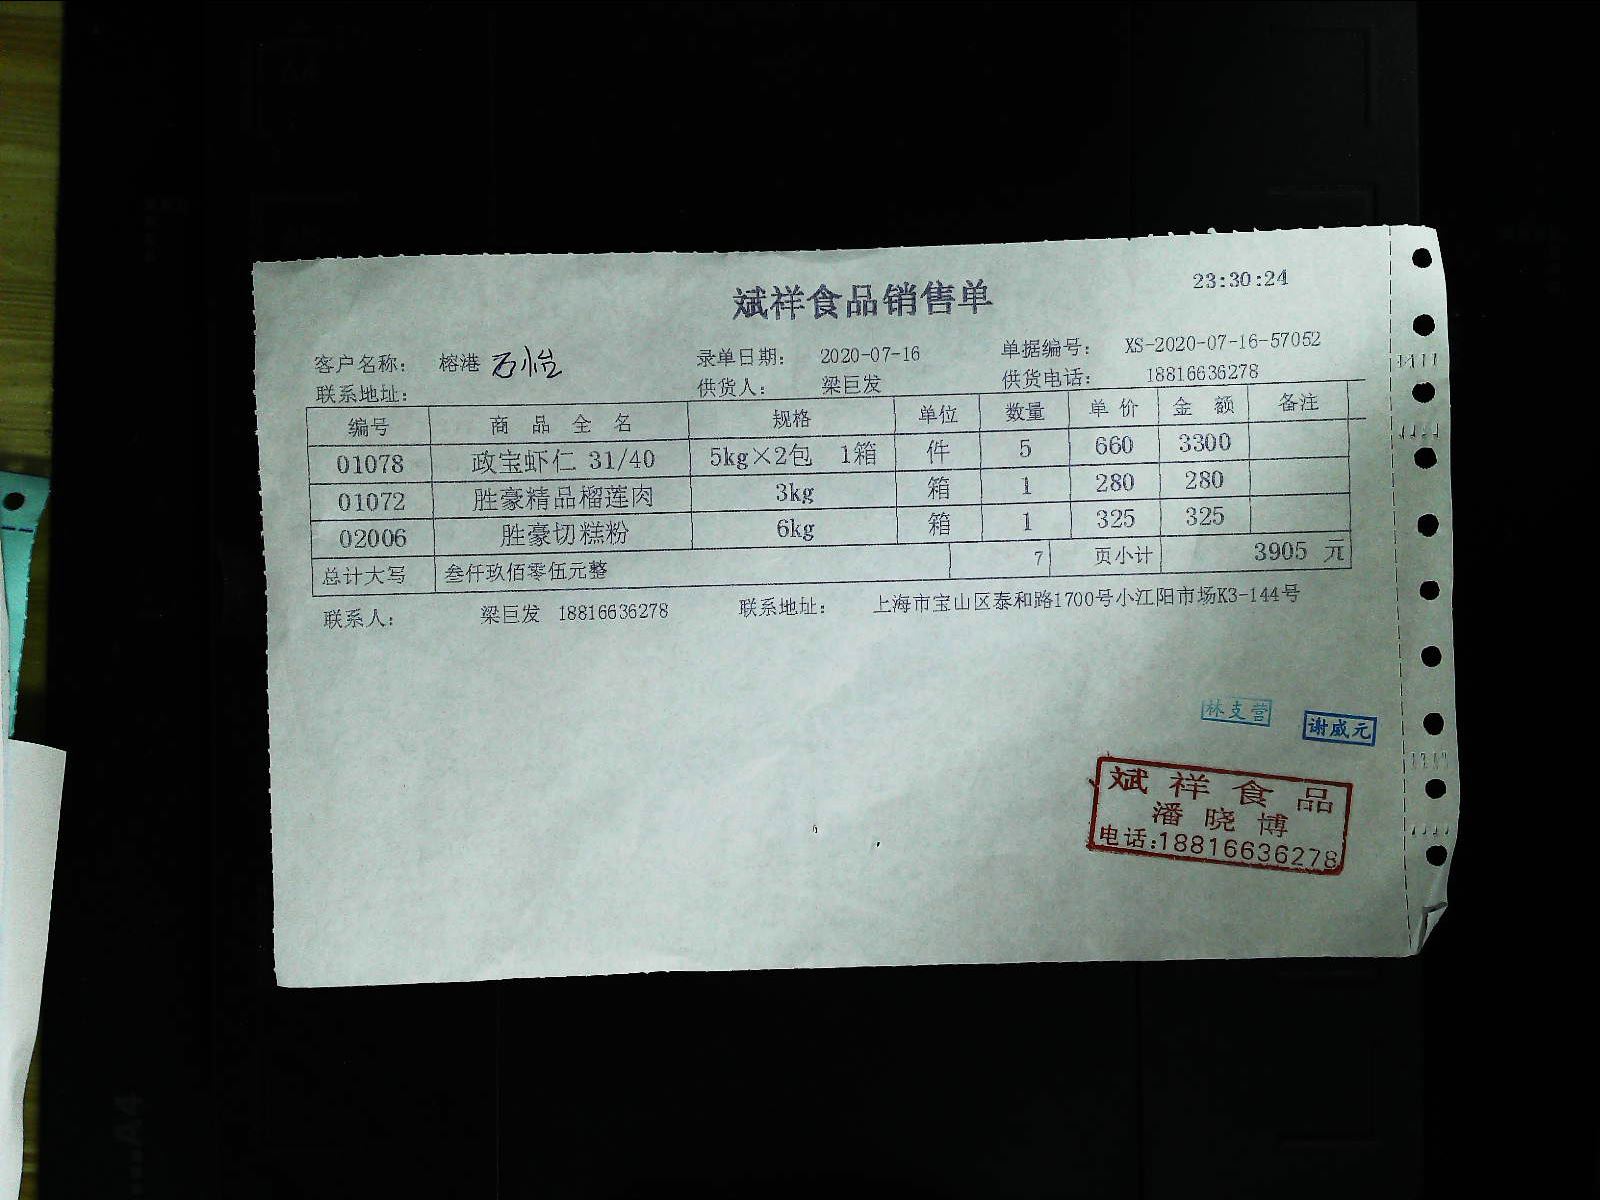 23:30:24
斌祥食品销售单
客户名称： 榕港 石怡 录单日期： 2020-07-16 单据编号： XS-2020-07-16-57052
联系地址： 供货人： 梁巨发 供货电话： 18816636278
编号 商品全名 规格 单位 数量 单价 金额 备注
01078 政宝虾仁 31/40 5kg×2包 1箱 件 5 660 3300
01072 胜豪精品榴莲肉 3kg 箱 1 280 280
02006 胜豪切糕粉 6kg 箱 1 325 325
总计大写 叁仟玖佰零伍元整 7 页小计 3905 元
联系人： 梁巨发 18816636278 联系地址： 上海市宝山区泰和路1700号小江阳市场K3-144号
林支营 谢威元
斌祥食品
潘晓博
电话:18816636278
A4